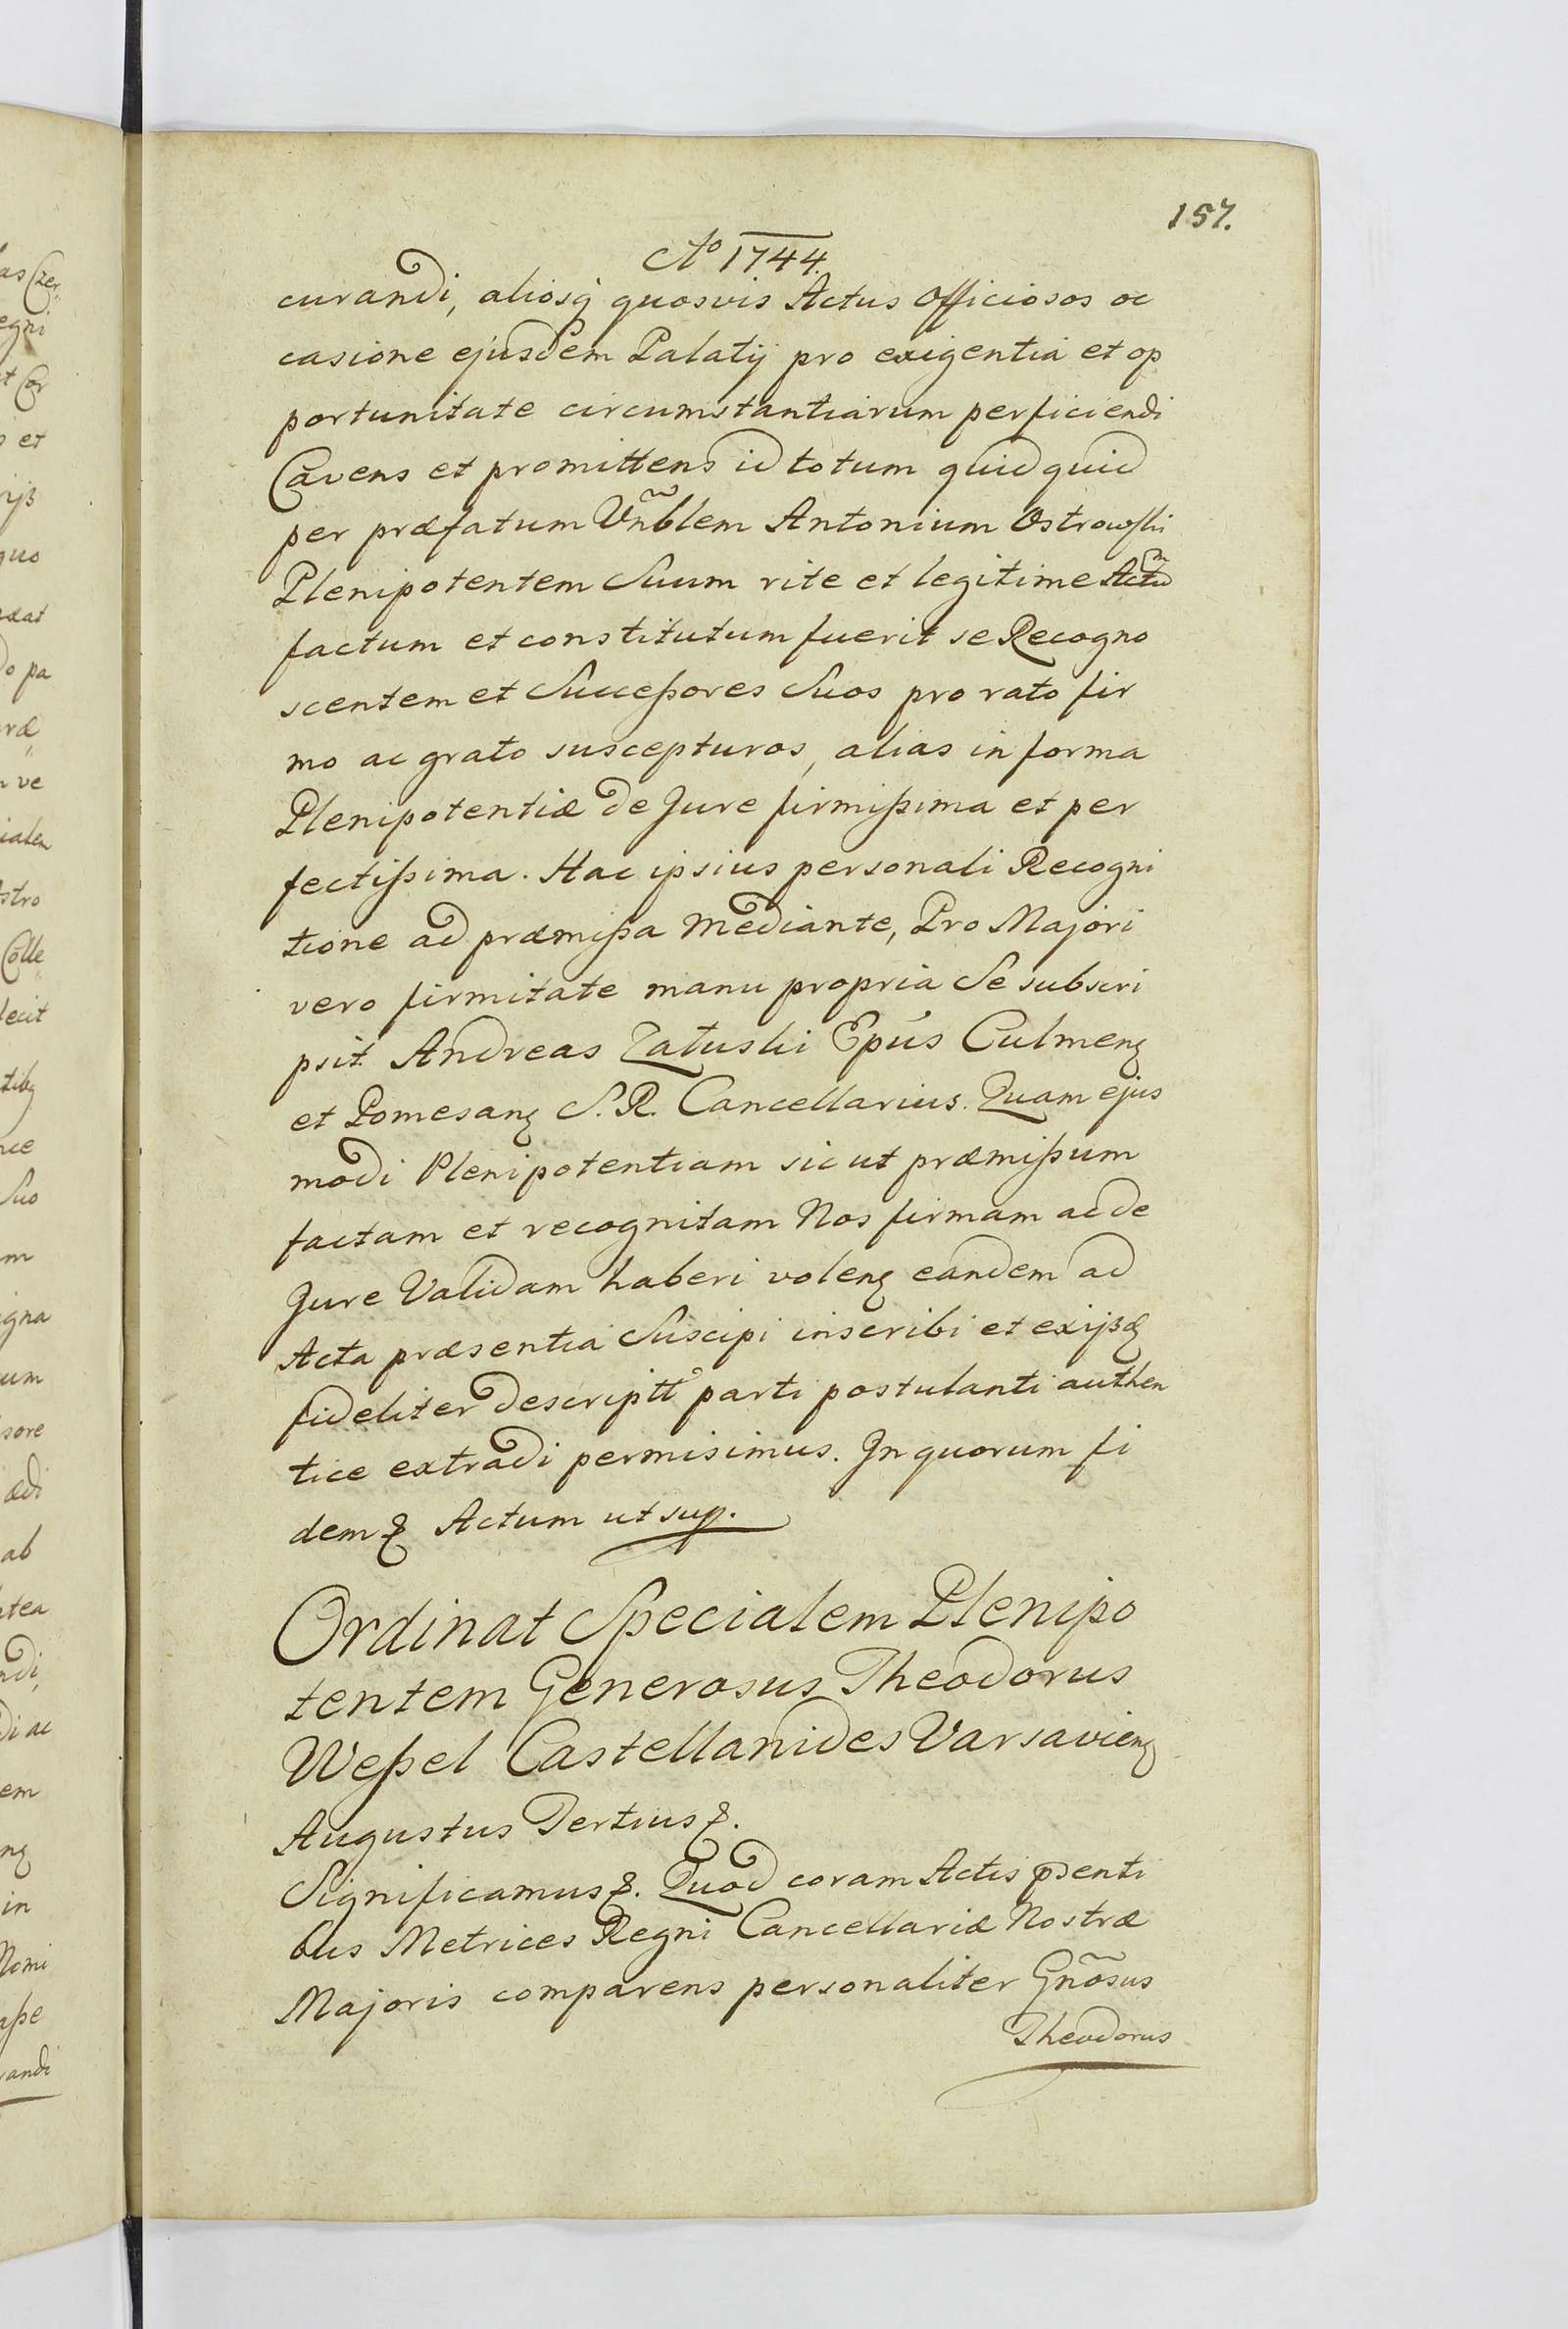 157.
Aº 1744.
curandi, aliosq quosvis Actus officiosos oc
casione ejusdem Palatij pro exigentia et op
portunitate circumstantiarum perficiendi
Cavens et promittens id totum quidquid
per præfatum Vñblem Antonium Ostrowski
Plenipotentem Suum rite et legitime Actũ
factum et constitutum fuerit se Recogno
scentem et Succeßores Suos pro rato fir
mo ac grato suscepturos, alias in forma
Plenipotentiæ de Jure firmißima et per
fectißima. Hac ipsius personali Recogni
tione ad præmißa mediante, Pro Majori
vero firmitate manu propria Se subscri
psit. Andreas Załuski Epus Culmenꝫ
et Pomesanꝫ S. R. Cancellarius. Quam ejus
modi Plenipotentiam sicut præmißum
factam et recognitam Nos firmam ac de
Jure Validam haberi volenꝫ eandem ad
Acta præsentia Suscipi inscribi et exijsdꝫ
fideliter descriptt parti postulanti authen
tice extradi permisimus. In quorum fi
dem ꝛ Actum ut sup.
Ordinat Specialem Plenipo
tentem Generosus Theodorus
Weßel Castellanides Varsavienꝫ
Augustus Tertius ꝛ.
Significamus ꝛ. Quod coram Actis pñsenti
bus Metrices Regni Cancellariæ Nostræ
Majoris comparens personaliter Gñosus
Theodorus
as Czer
egni
t Cor
et
quo
do pa
ræ
ve
ialem
stro
Colle
lecit
Suo
m
igna
um
sore
ædi
ab
ndi,
di ac
em
nꝫ
in
Nomi
aße
randi